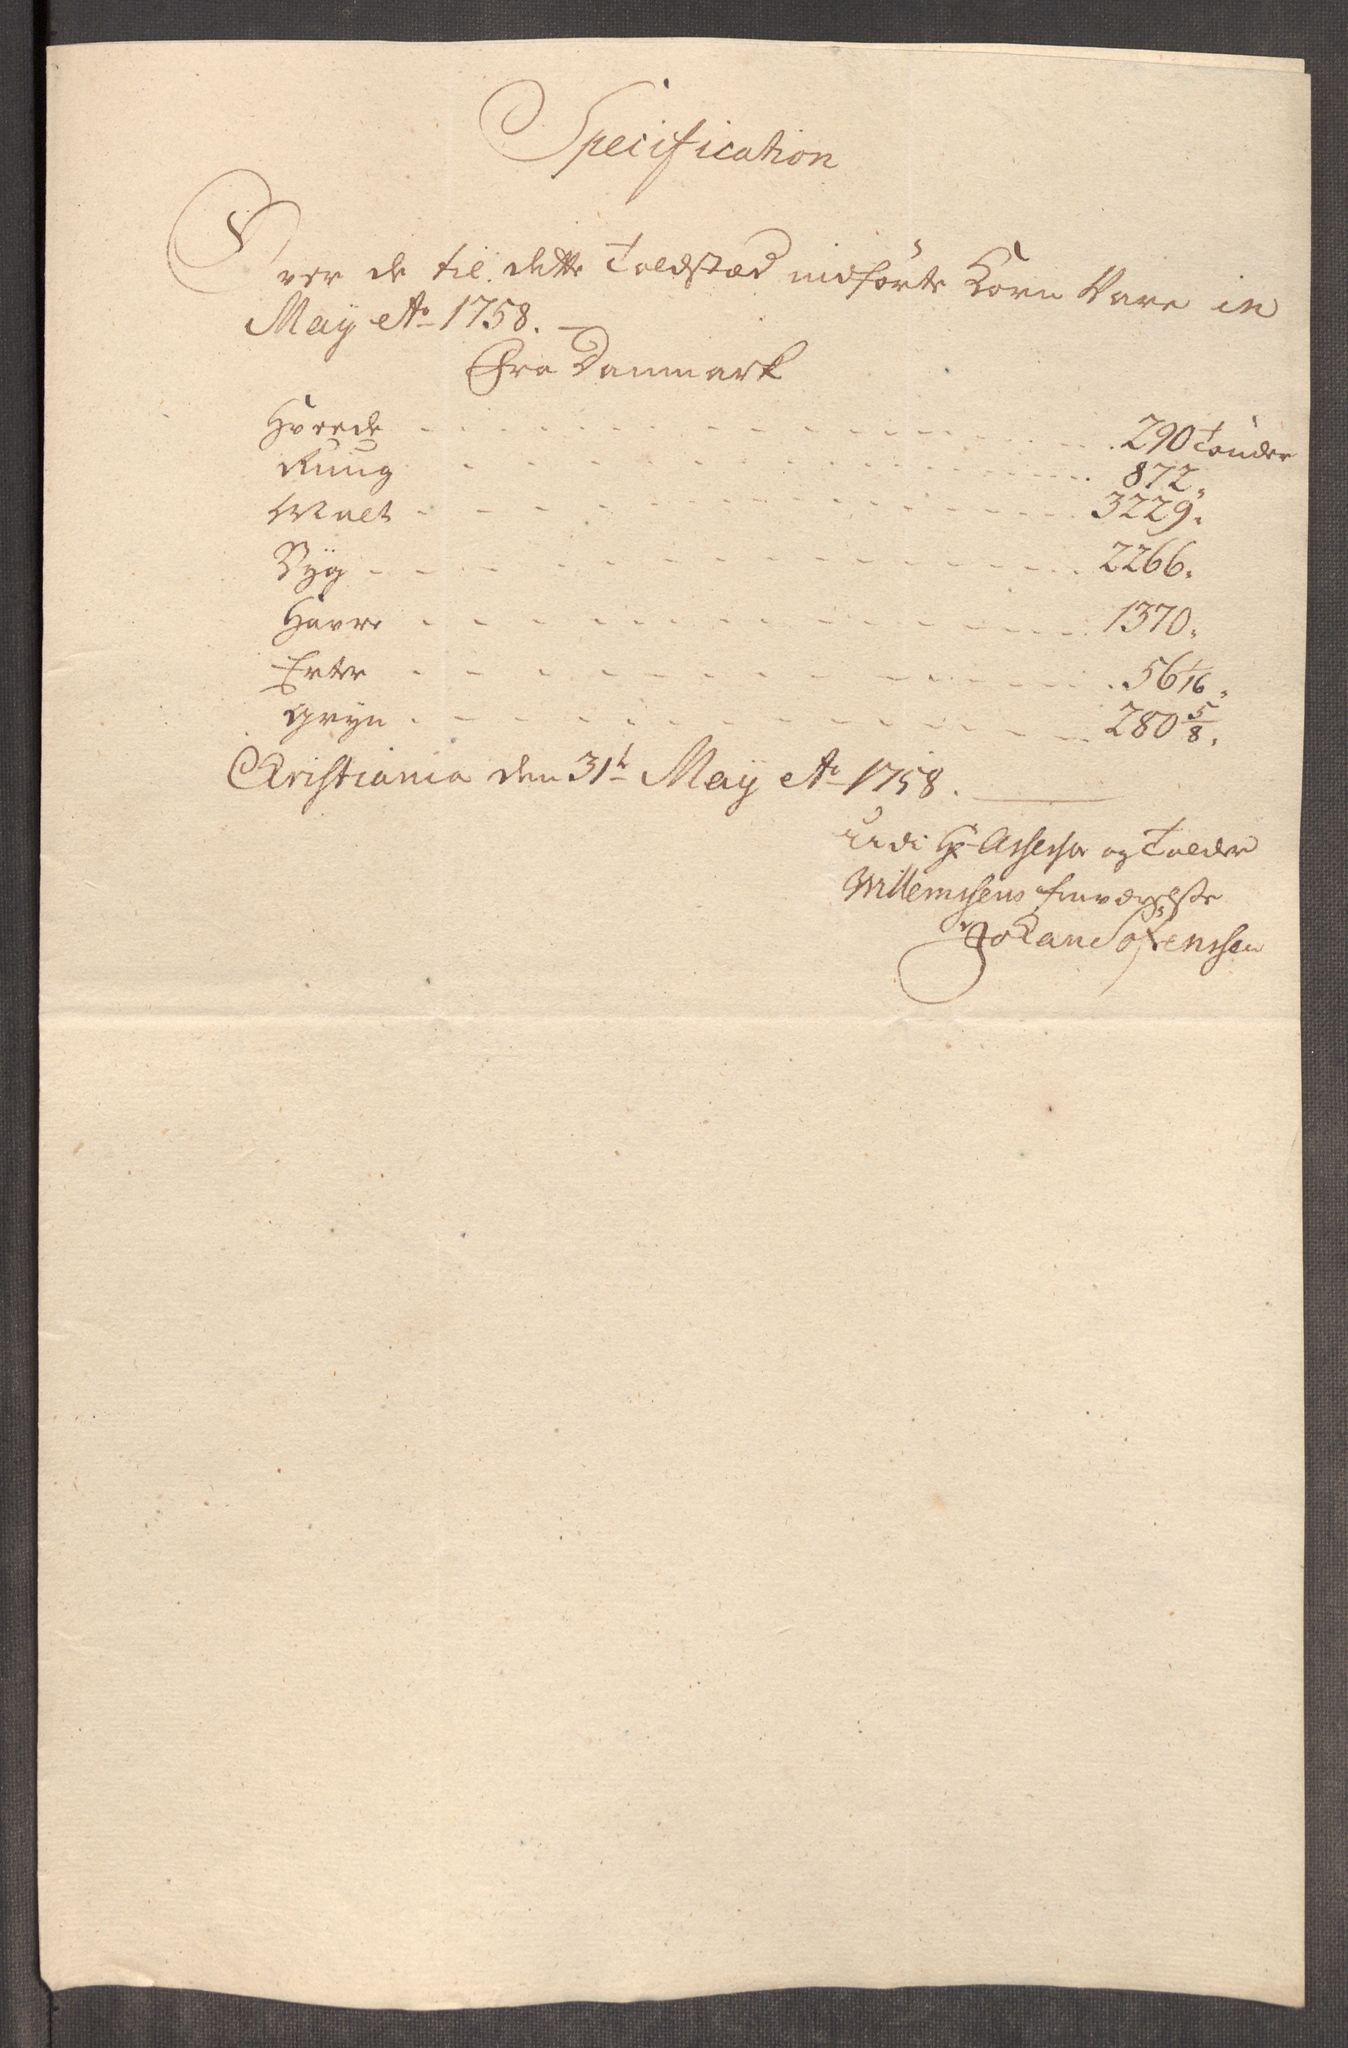 Specification
Over de til dette Toldstæd indførte Korn Vare in
Maÿ Ao 1758.
Fra Danmark
Hveede 290 Tønder
Ruug 872"
Malt 3229"
Bÿg 2266"
Havre 1370"
Erter 56 1/16"
Gryn 280 5/8"
Christiania den 31t Maÿ Ao 1758.
udi Hr Assessor og Tolder
Willemsens fraværelse
Johan Sørenssen